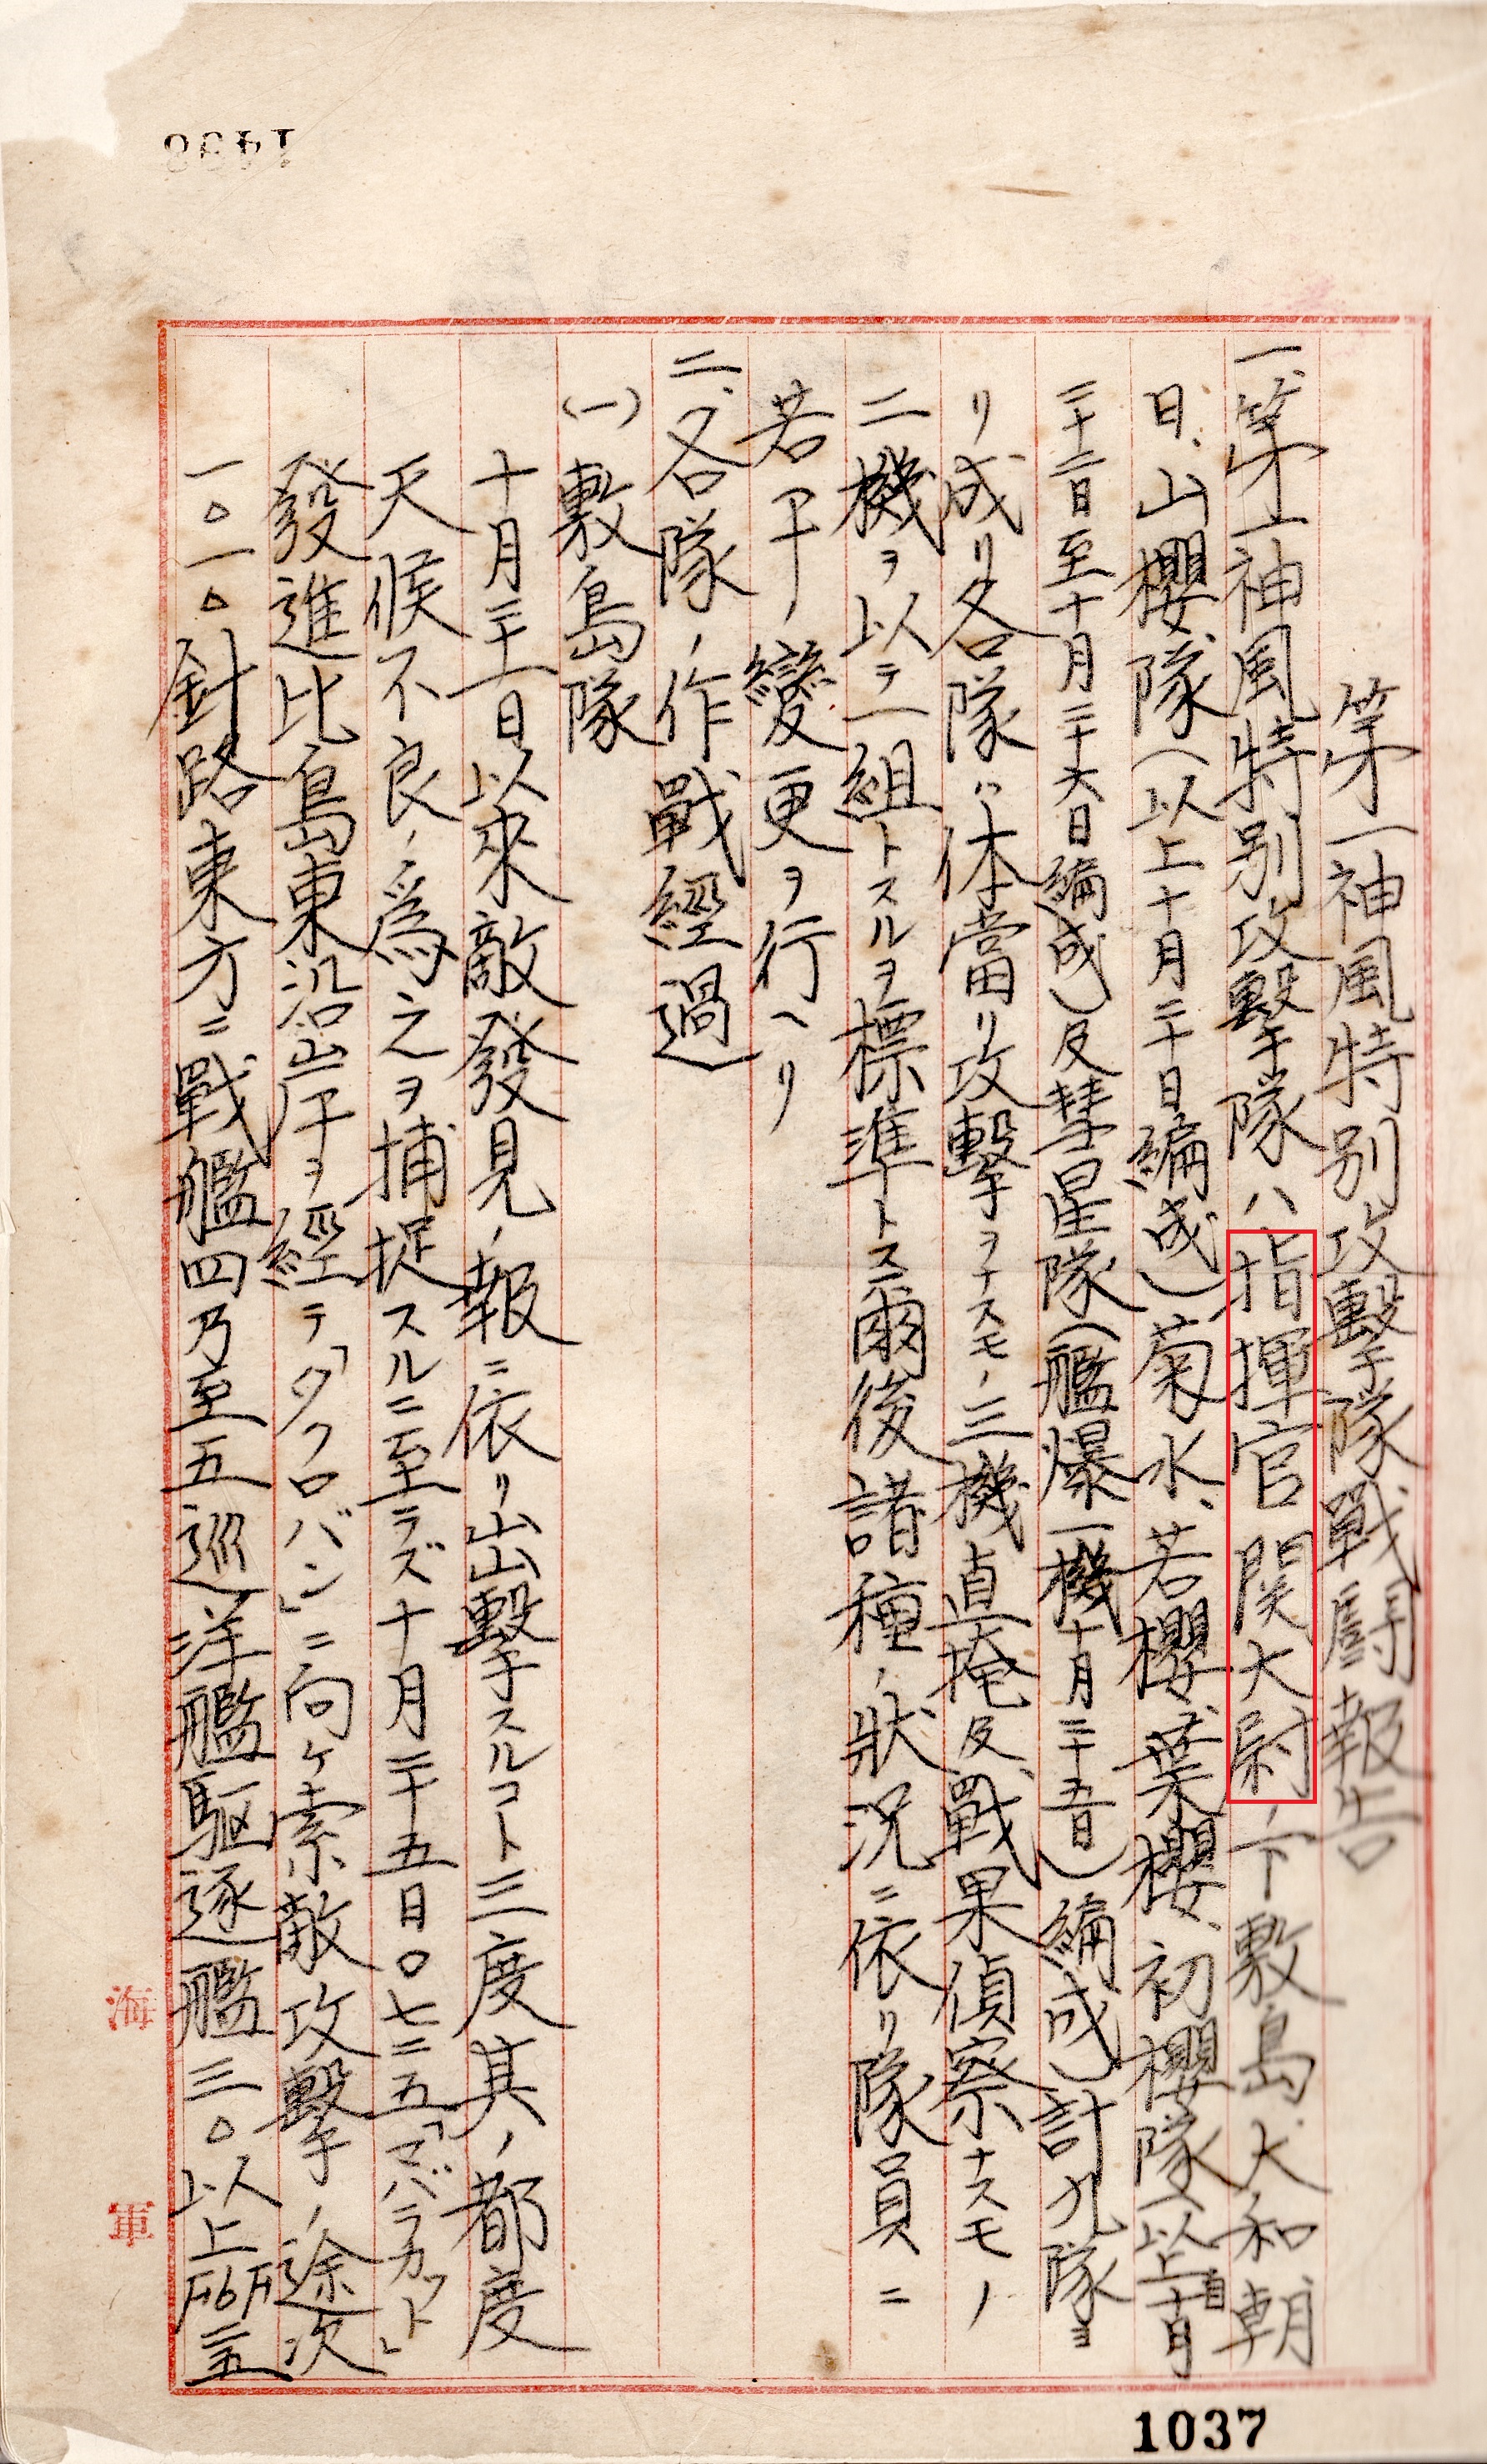 1498
第一神風特別攻撃隊戰闘報告
一、第一神風特別攻撃隊ハ指揮官関大尉ノ下敷島大和朝
日、山櫻隊(以上十月二十日編成)菊水、若櫻、葉櫻、初櫻隊(以上自十月
二十二日至十月二十六日編成)及彗星隊(艦爆一機十月二十五日)編成)計九隊ヨ
リ成リ各隊ハ体當リ攻撃ヲナスモノ三機直掩及戰果偵察ナスモノ
二機ヲ以テ一組トスルヲ標準トス爾後諸種ノ狀況ニ依リ隊員ニ
若干ノ變更ヲ行ヘリ
二、各隊ノ作戰經過
(一)敷島隊
十月二十一日以來敵發見ノ報ニ依リ出撃スルコト三度其ノ都度
天候不良ノ爲之ヲ捕捉スルニ至ラズ十月二十五日〇七二五「マバラカット」
發進比島東沿岸ヲ經テ「タクロバン」ニ向ケ索敵攻撃ノ途次
一〇一〇針路東方ニ戰艦四乃至五巡洋艦駆逐艦三〇以上
海軍
1037